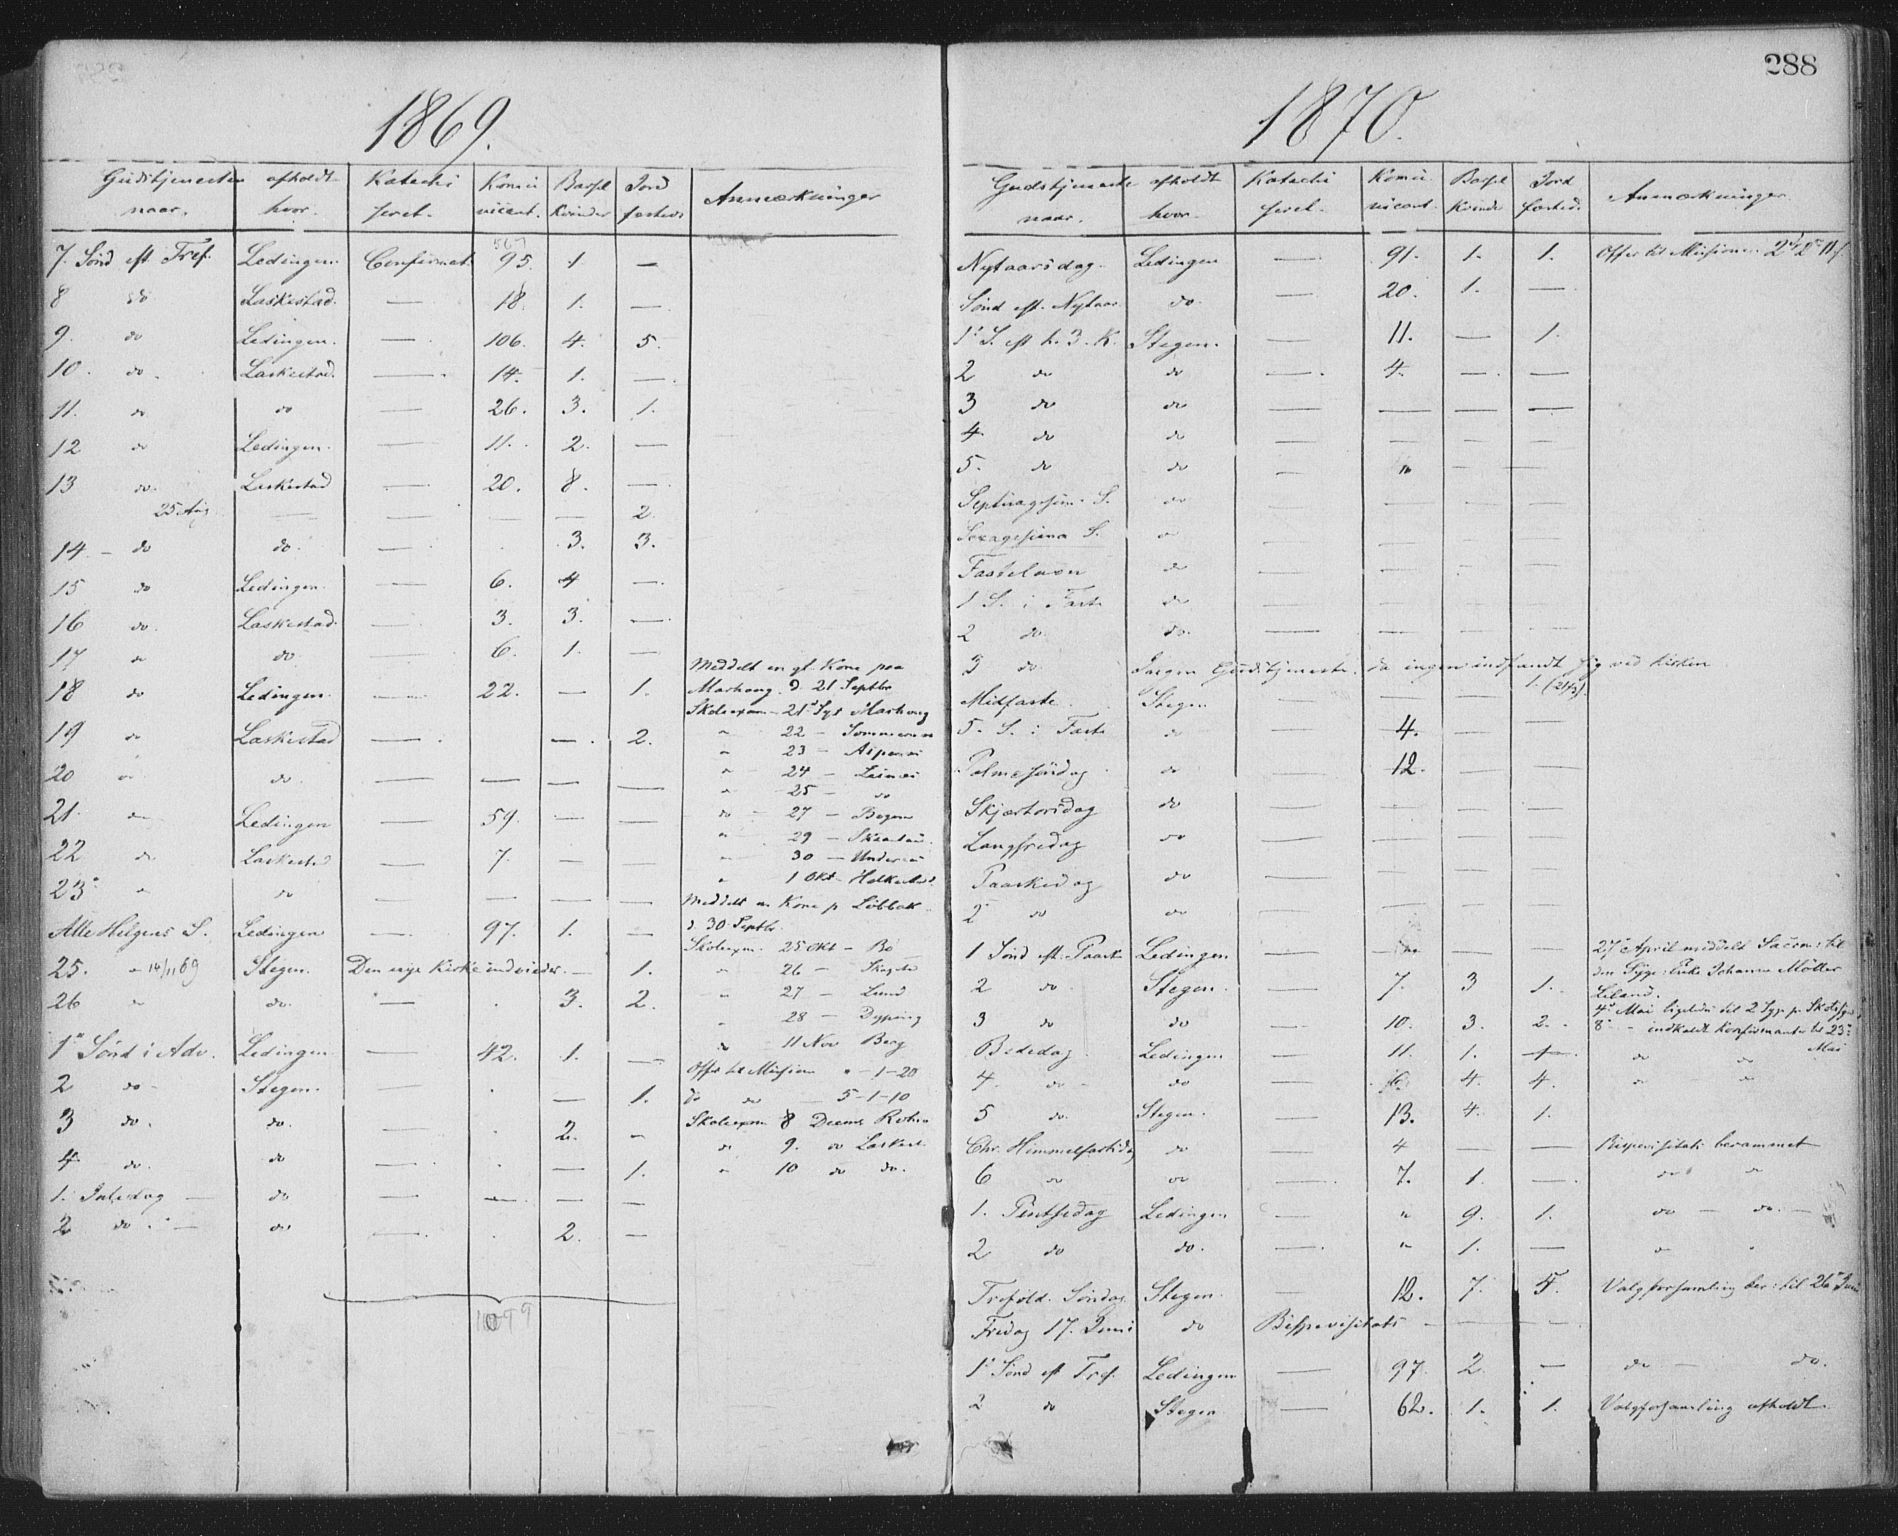 288
1869.
Gudstjenesten afholdt Katechi Komu Barsel Jord Anmærkninger
naar. hvor. seret. nicant. Kvinder fæstede
567
7. Sönd eft Tref. Ledingen. Confirmat. 95. 1 —
8 do Laskestad. — 18. 1. —
9. do Ledingen. — 106. 4. 5.
10. do. Laskestad. — 14. 1. —
11. do do — 26. 3. 1.
12 do Ledingen. — 11. 2. —
13 do. Laskestad — 20. 8. —
25 Aug. — — — — 2
14. — do do. — . 3. 3.
15 do Ledingen. — 6. 4 —
16 do. Laskestad. — 3. 3. —
17 do do. — 6. 1. — Meddelt en gl. Kone paa
18 do Ledingen. — 22. — 1. d. 21 Septbr
19 do Laskestad — — 2. " 22 —
" 23 —
20 do do. — — — — " 24 —
" 25 — do
21. do Ledingen — 59. — — do — 27 — Bogen
" 29 —
22 do Laskestad — 7. — — " 30 —
23 " do — — — — " 1 Okt —
Meddelt en Kone p Löbbak
Alle Helgens S. Ledingen — 97. 1. — d. 30 Septbr
Skoleexm. 25 Okt — Bö
25. " 14/11 69 Stegen. Den nye Kirke indviedes. — 1. " 26 —
26 " do. — . 3. 2. " 27 — Lund
" 28 — Dypping
1ste Sönd i Adv. Ledingen. — 42. 1. — " 11 Nov Berg
Offer til Mission " — 1 — 20
2 do — Stegen. — . — 1. do do — 5-1-10
3 do. do. — 2. — Skoleexm 8 Decmb
4 do. do — . — 1. do 9. do Laskest.
" 10 do do.
1. Juledag — do — — — —
2 do . — do — . 2. —
1099
1870.
Gudstjeneste afholdt Katechi Komu Barsel Jord Anmærkninger
naar. hvor. seret. nicant. Kvinder fæsted.
Nytaarsdag. Ledingen — 91. 1. 1. Offer til Missionen
Sönd eft. Nytaar do. — 20. 1. —
1ste S. eft h. 3. K. Stegen. — 11. — 1.
2 do do — . 4. — —
3 do do — — — —
4 do do — — — —
5. do do — " — —
Septuagesim. S. do — — — —
Sexagesima S. do — — — —
Fastelavn do — — — —
1 S. i Faste do — — — —
2 do. do. — — — —
3 do. Ingen Gudstjeneste, da ingen indfandt sig ved Kirken
Midfaste. Stegen — — — 1. (21/3)
5. S. i Faste do — 4. — —
Palmesöndag do — 12. — —
Skjærtorsdag do — — — —
Langfredag do — — — —
Paaskedag do — — — —
2 do do — — — —
1 Sönd eft. Paaske Ledingen — — — 27de April meddelt Sacram: til
den Syge: Enke Johanna Möller
2 do. Stegen. — 7. 3 1. Leland.
4de Mai ligeledes til 2 Syge p.
3 do do — 10. 3. 2. 8de — indkaldt Konfirmanter til 23de
Mai
Bededag. Ledingen — 11. 1. — do do
4. do — do — 4. 4. " "
5 do. Stegen. — 13. 4. 1.
Chr. Himmelfartsdag do — 4 — — Bispevisitats berammet
6 do do — 7. 1. — do "
1. Pintsedag Ledingen — " 9. 1. do — do. —
2 do do. — " 1. — " "
Trefold. Söndag Stegen. — 12. 7. 5. Valgforsamling ber: til 26de Juni
Fredag 17. Juni do Bispevisitats — — —
1ste Sönd eft Tref. Ledingen — 97. 2. — do — do.
2 do Stegen. — 62. 1. 1. Valgforsamling afholdt.